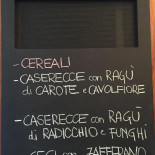 - CEREALI
- CASERECCE con RAGÙ
di CAROTE e CAVOLFIORE
- CASERECCE con RAGÙ
di RADICCHIO e FUNGHI
CECI con ZAFFERANO